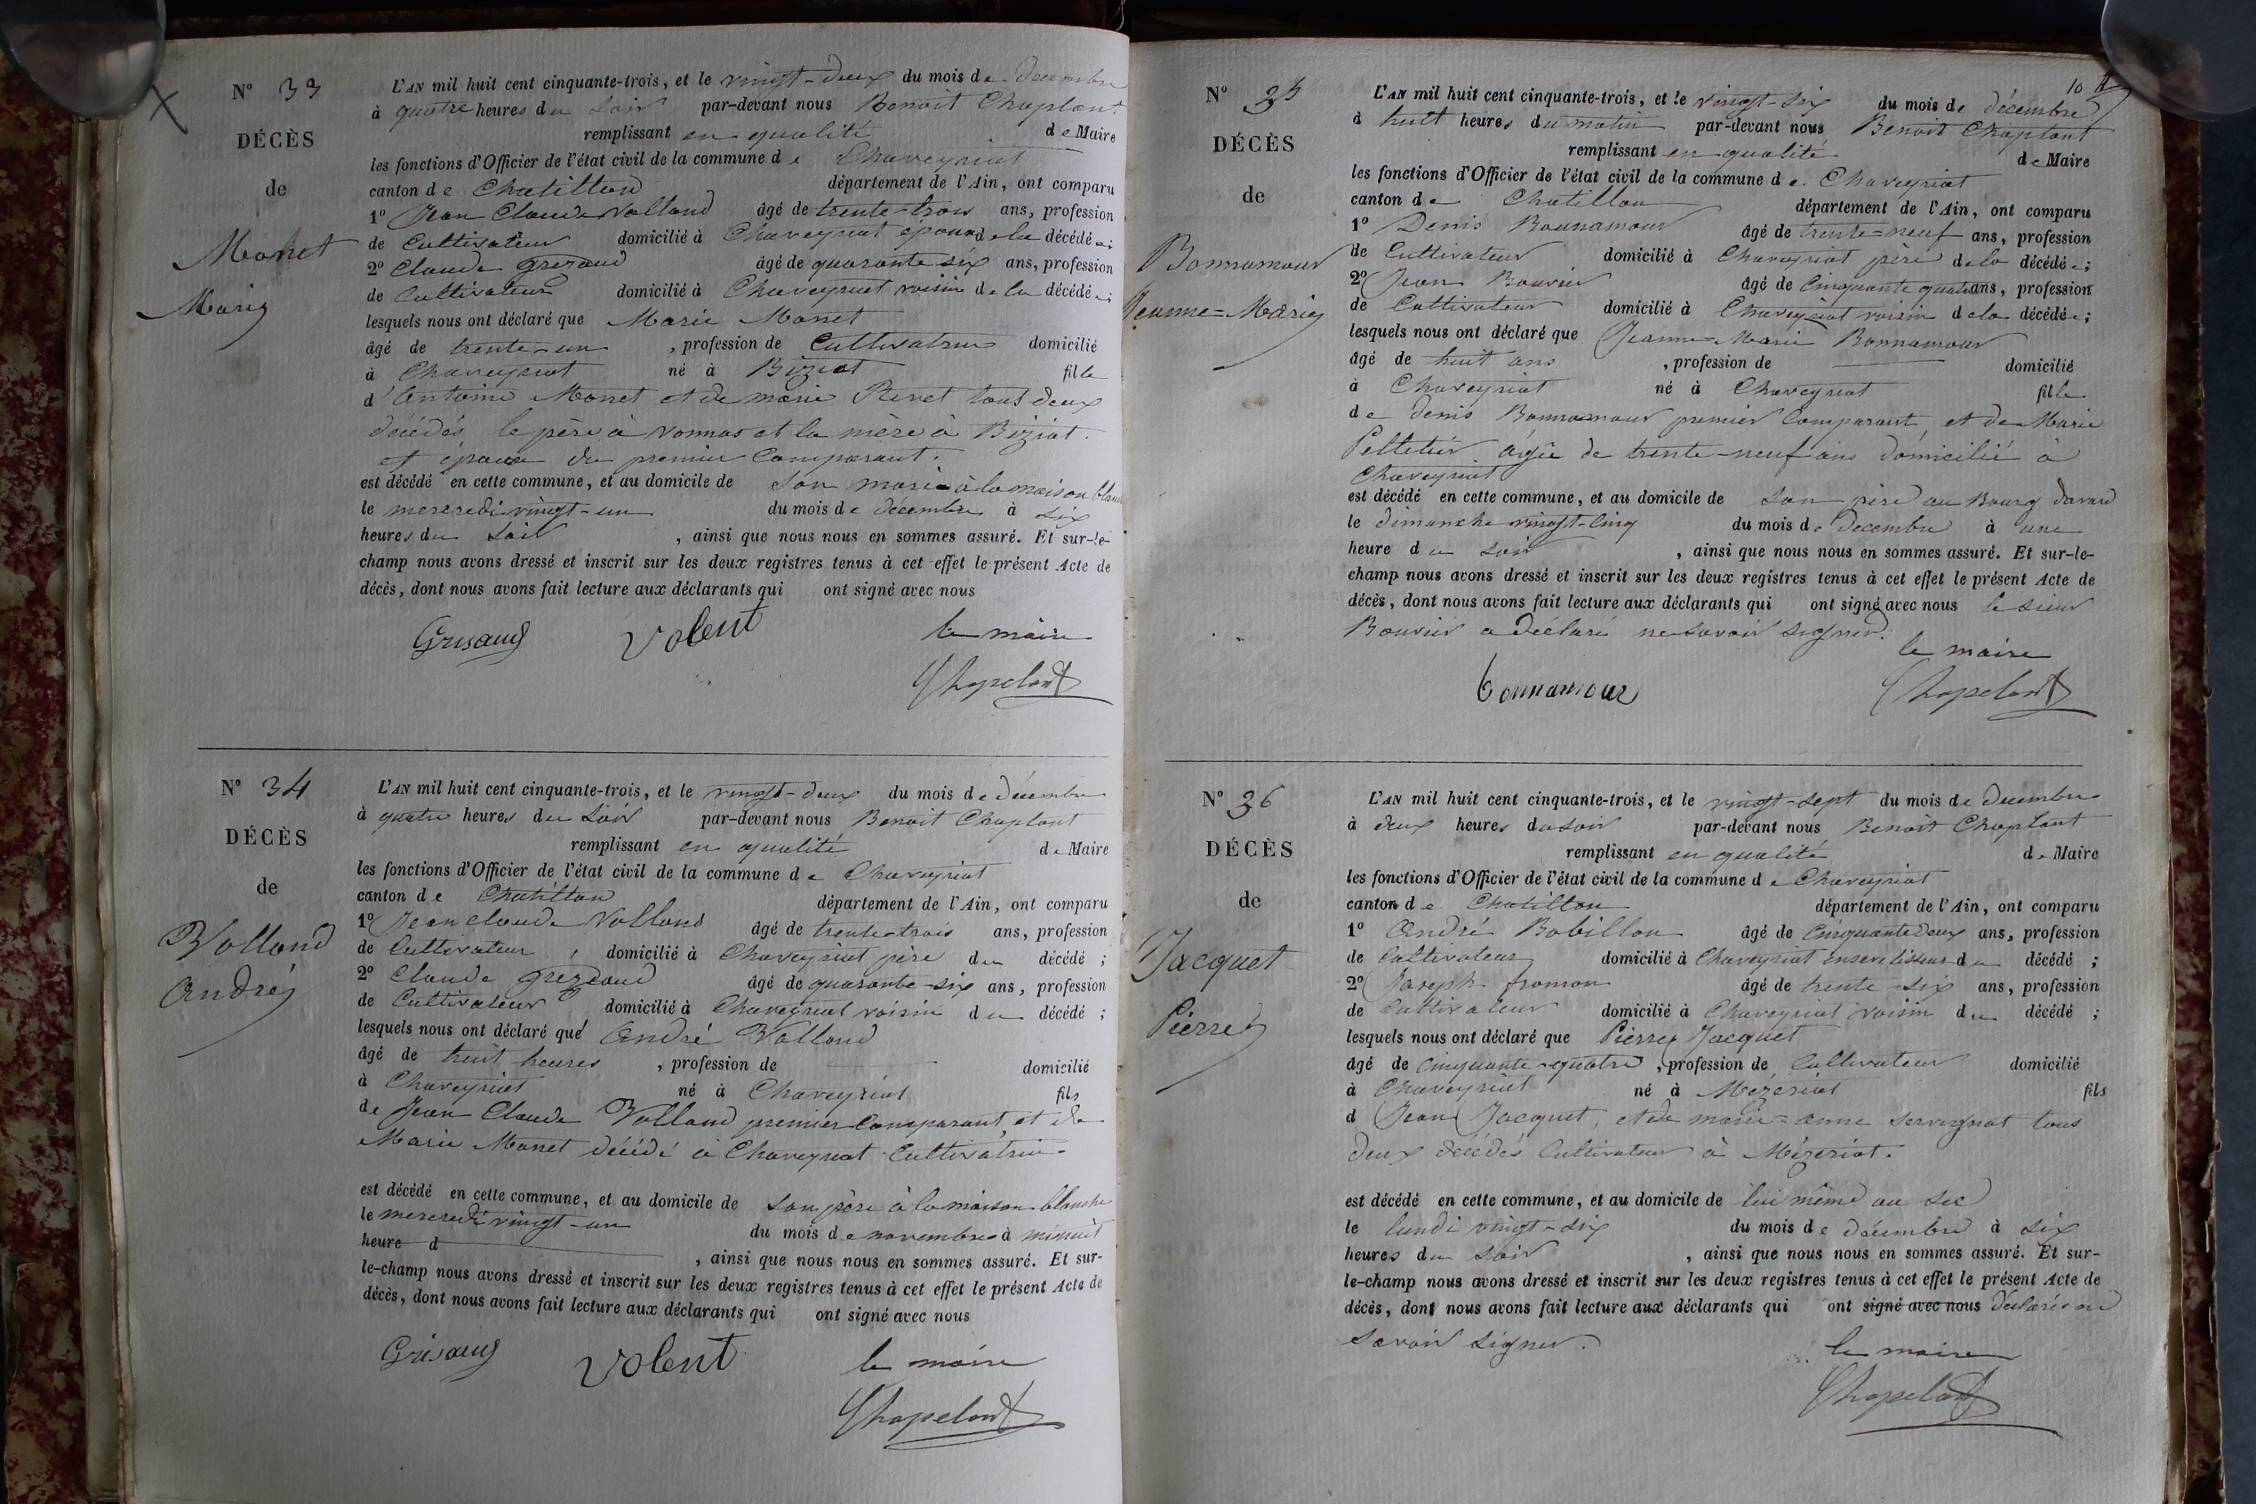 N° 33
DÉCÈS
de
Monet
Marie
L'AN mil huit cent cinquante-trois, et le vingt-deux du mois de decembre
à quatre heures du soir par-devant nous Benoit Chaplant
remplissant en qualité de Maire
les fonctions d'Officier de l'état civil de la commune de Chaveyriat
canton de Chatillon département de l'Ain, ont comparu
1° Jean Claude Volland âgé de trente-trois ans, profession
de Cultivateur domicilié à Chaveyriat époux de la décédée;
2° Claude Grezaud âgé de quarante six ans, profession
de Cultivateur domicilié à Chaveyriat voisin de la décédée;
lesquels nous ont déclaré que Marie Monet
âgé de trente-un , profession de Cultivatrice domicilié
à Chaveyriat né à Biziat fille
d'Antoine Monet et de marie Revet tous deux
décédés le père à Vonnas et la mère à Biziat.
et épouse du premier Comparant.
est décédé en cette commune, et au domicile de Son marie à la maison blan
le mercredi vingt-un du mois de décembre à six
heures du soir , ainsi que nous nous en sommes assuré. Et sur-le-
champ nous avons dressé et inscrit sur les deux registres tenus à cet effet le présent Acte de
décès, dont nous avons fait lecture aux déclarants qui ont signé avec nous
Grisaud Volent le maire
Chapelant
N° 34
DÉCÈS
de
Volland
André
L'AN mil huit cent cinquante-trois, et le vingt-deux du mois de décembre
à quatre heures du soir par-devant nous Benoit Chaplant
remplissant en qualité de Maire
les fonctions d'Officier de l'état civil de la commune de Chaveyriat
canton de Chatillon département de l'Ain, ont comparu
1° Jean Claude Volland âgé de trente-trois ans, profession
de Cultivateur , domicilié à Chaveyriat père du décédé ;
2° Claude Grezaud âgé de quarante-six ans, profession
de Cultivateur domicilié à Chaveyriat voisin du décédé ;
lesquels nous ont déclaré que André Volland
âgé de heures , profession de domicilié
à Chaveyriat né à Chaveyriat fils
de Jean Claude Volland premier Comparant, et de
Marie Monet décédé à Chaveyriat Cultivatrice
est décédé en cette commune, et au domicile de son père à la maison blanche
le mercredi vingt-un du mois de novembre à minuit
heure d , ainsi que nous nous en sommes assuré. Et sur-
le-champ nous avons dressé et inscrit sur les deux registres tenus à cet effet le présent Acte de
décès, dont nous avons fait lecture aux déclarants qui ont signé avec nous
Grisaud Volent le maire
Chapelant
10
N° 35
DÉCÈS
de
Bonnamour
Jeanne=Marie
L'AN mil huit cent cinquante-trois, et le vingt-six du mois de décembre
à huit heures du matin par-devant nous Benoit Chaplant
remplissant en qualité de Maire
les fonctions d'Officier de l'état civil de la commune de Chaveyriat
canton de Chatillon département de l'Ain, ont comparu
1° Denis Bonnamour âgé de trente=neuf ans, profession
de Cultivateur domicilié à Chaveyriat père de la décédée;
2° Jean Bouvier âgé de Cinquante quatre ans, profession
de Cultivateur domicilié à Chaveyriat voisin de la décédée;
lesquels nous ont déclaré que Jeanne-Marie Bonnamour
âgé de huit ans , profession de domicilié
à Chaveyriat né à Chaveyriat fille
de denis Bonnamour premier Comparant, et de Marie
Pelletier âgée de trente-neuf ans domicilié à
Chaveyriat
est décédé en cette commune, et au domicile de son père au Bourg
le dimanche vingt-cinq du mois de decembre à une
heure du soir , ainsi que nous nous en sommes assuré. Et sur-le-
champ nous avons dressé et inscrit sur les deux registres tenus à cet effet le présent Acte de
décès, dont nous avons fait lecture aux déclarants qui ont signé avec nous le sieur
Bouvier a déclaré ne savoir signer.
le maire
bonnamour Chapelant
N° 36
DÉCÈS
de
Jacquet
Pierre
L'AN mil huit cent cinquante-trois, et le vingt-sept du mois de decembre
à deux heures du soir par-devant nous Benoit Chaplant
remplissant en qualité de Maire
les fonctions d'Officier de l'état civil de la commune de Chaveyriat
canton de Chatillon département de l'Ain, ont comparu
1° André Bobillon âgé de Cinquante deux ans, profession
de Cultivateur domicilié à Chaveyriat ensevelisseur du décédé ;
2° Joseph fromon âgé de trente-six ans, profession
de Cultivateur domicilié à Chaveyriat voisin du décédé ;
lesquels nous ont déclaré que Pierre Jacquet
âgé de cinquante-quatre , profession de Cultivateur domicilié
à Chaveyriat né à Mézériat fils
d Jean Jacquet, et de marie=anne servignat tous
deux décédés Cultivateur à Mézériat.
est décédé en cette commune, et au domicile de lui même au sec
le lundi vingt-six du mois de décembre à six
heures du soir , ainsi que nous nous en sommes assuré. Et sur-
le-champ nous avons dressé et inscrit sur les deux registres tenus à cet effet le présent Acte de
décès, dont nous avons fait lecture aux déclarants qui ont signé avec nous déclaré ne
savoir signer.
le maire
Chapelant